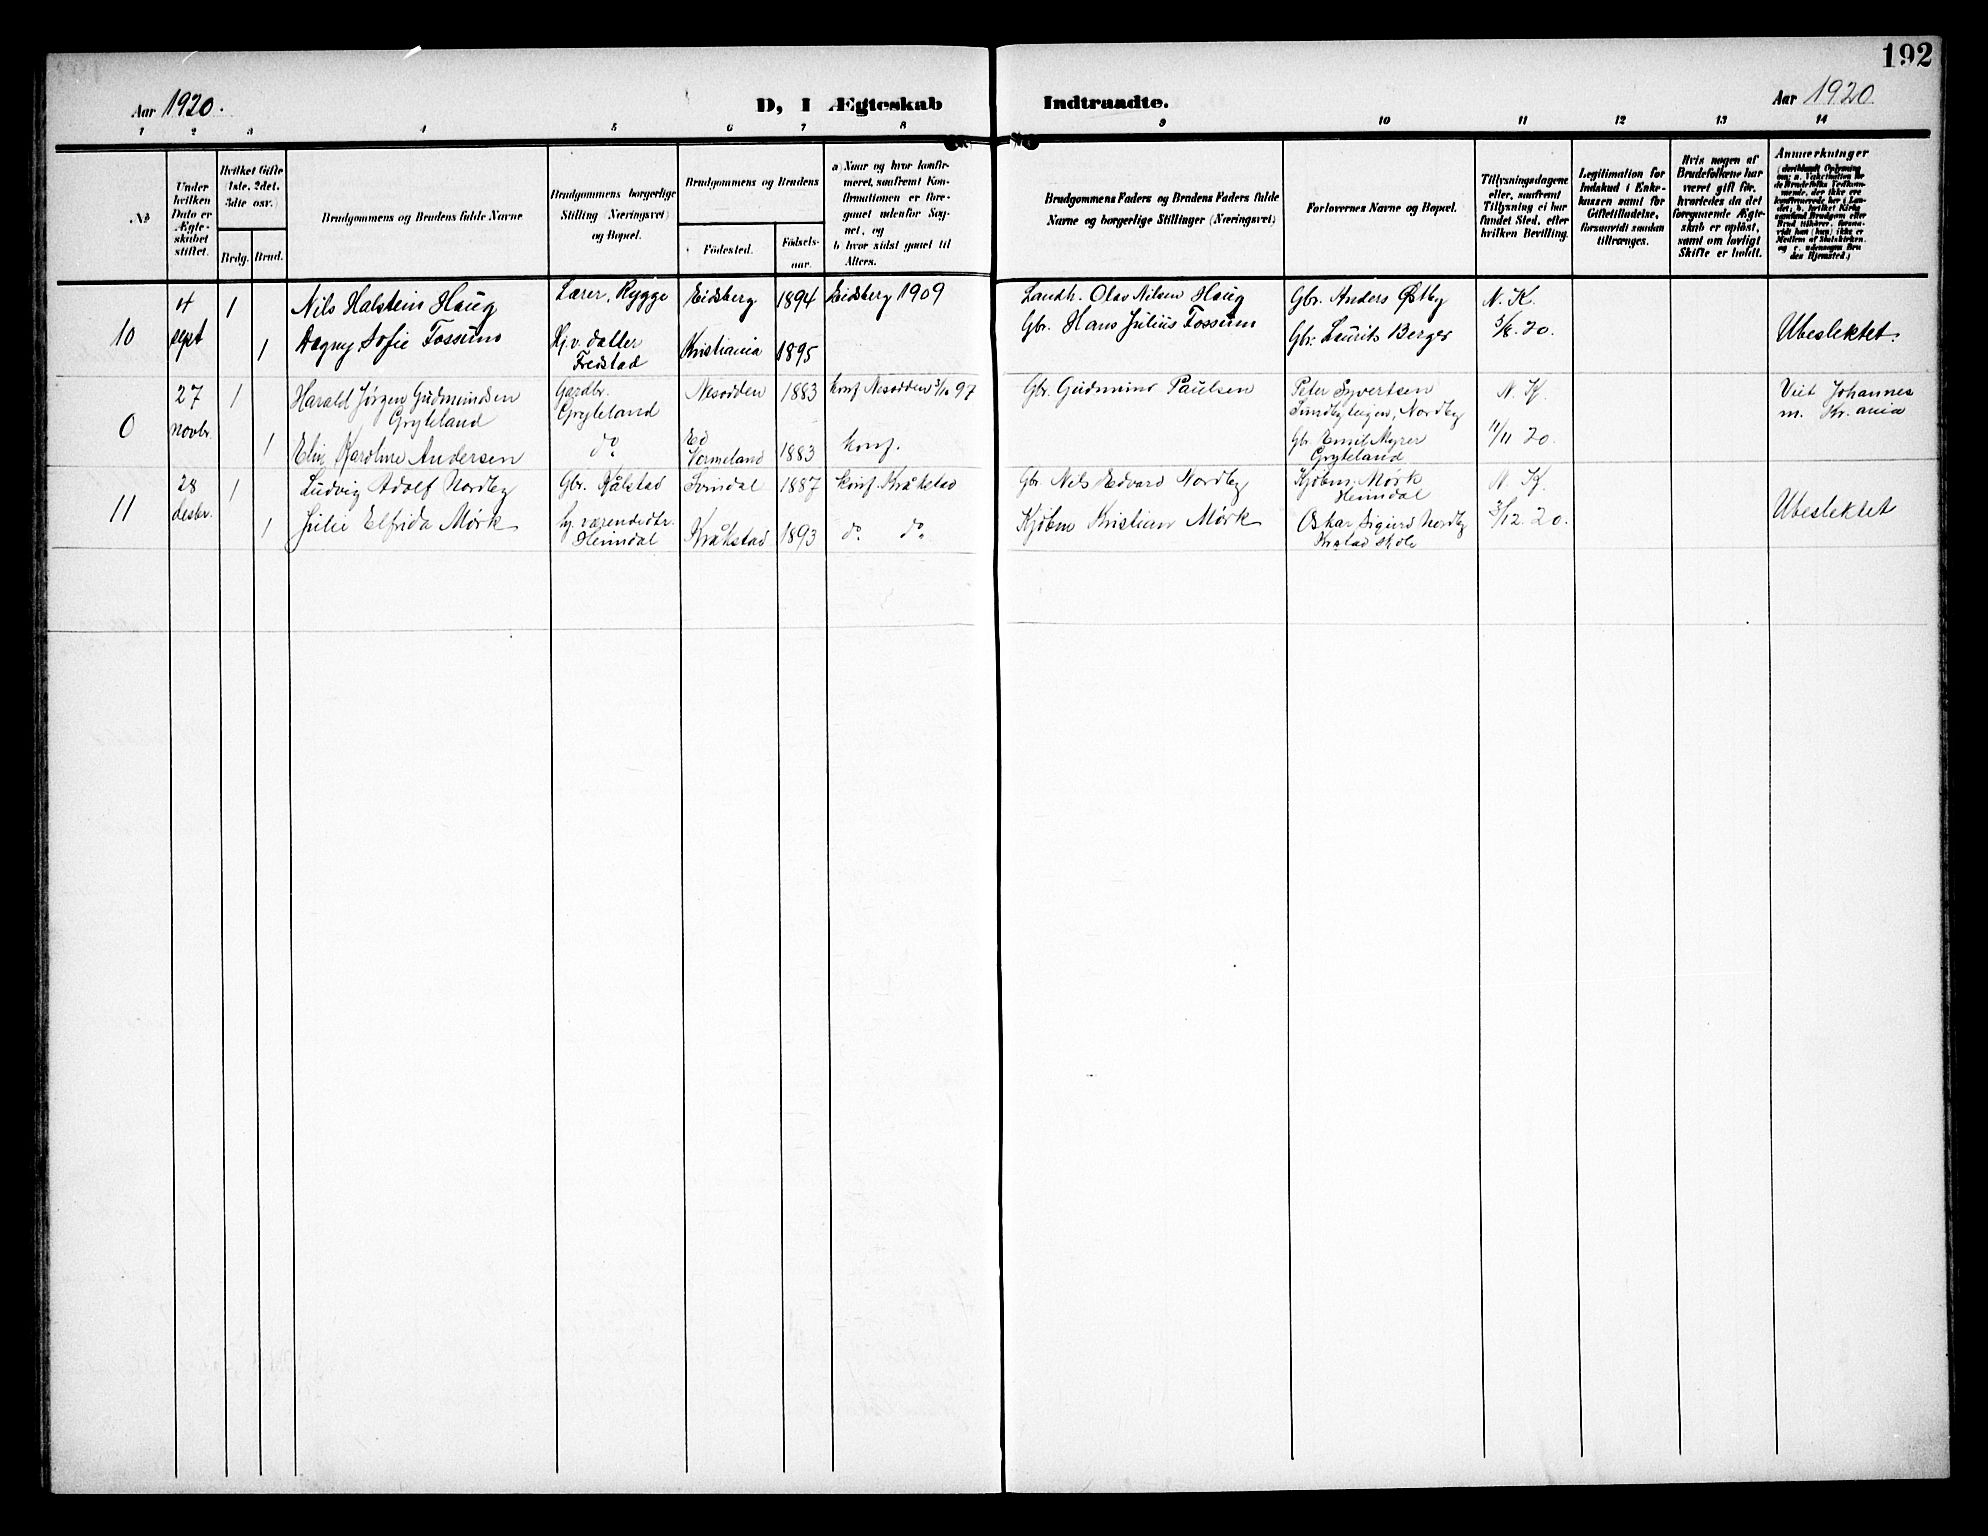 192
Aar 1920.
D, I Ægteskab Indtraadte.
Aar 1920
1 2 3 4 5 6 7 8 9 10 11 12 13 14
No
Under hvilken Dato er Ægteskabet stiftet.
Hvilket Gifte (1ste, 2det, 3die osv.)
Brdg. Brud.
Brudgommens og Brudens fulde Navne
Brudgommens borgerlige Stilling (Næringsvei) og Bopæl.
Brudgommens og Brudens
Födested.
Födsels-aar.
a) Naar og hvor konfirmeret, saafremt Konfirmationen er foregaaet udenfor Sognet, og
b hvor sidst gaaet til Alters.
Brudgommens Faders og Brudens Faders fulde Navne og borgerlige Stillinger (Næringsvei)
Forlovernes Navne og Bopæl.
Tillysningsdagene eller, saafremt Tillysning ei har fundet Sted, efter hvilken Bevilling.
Legitimation for Indskud i Enkekassen samt for Giftetilladelse, forsaavidt saadan tiltrænges.
Hvis nogen af Brudefolkene har været gift för, hvorledes da det foregaaende Ægteskab er oplöst, samt om lovligt Skifte er holdt.
Anmerkninger
10
4 sept
1
Nils Halstein Haug
Lærer, Rygge
Eidsberg
1894
Eidsberg 1909
Landh. Olav Nilsen Haug
Gbr. Anders Østby
N. K.
1
Dagny Sofie Fossum
Hj.v. datter Fredstad
Kristiania
1895
Gbr. Hans Julius Fossum
Gbr. Laurits Berger
5/8. 20.
Ubeslektet.
0
27 novbr.
1
Harald Jørgen Gudmundsen Gryteland
Gardbr. Gryteland
Nesodden
1883
konf Nesodden 3/10 97
Gbr. Gudmund Paulsen
Peter Syvertsen
Sundbyteigen, Nordby
N. K.
Viet Johannes m. Kr. ania
1
Elin Karoline Andersen
do
Ed Vermeland
1883
konf.
Gbr. Emil Myrer
Gryteland
11/11 20.
11
28 desbr.
1
Ludvig Adolf Nordby
Gbr. Kålstad
Svindal
1887
konf. Kråkstad
Gbr. Nils Edvard Nordby
Kjöbm. Mørk
Heimdal
N. K.
1
Julie Elfrida Mørk
hj. værende dtr. Heimdal
Kråkstad
1893
do do
Kjöbm Kristian Mørk
Oskar Sigurd Nordby
skole
3/12. 20.
Ubeslektet